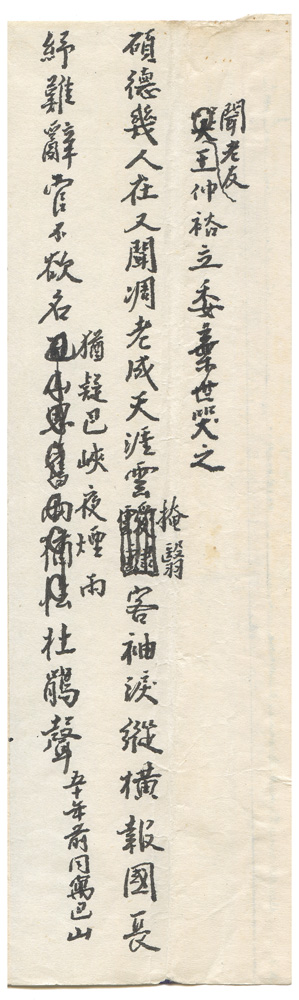 聞老友王仲裕立委棄世哭之
碩德幾人在又聞凋老成天涯雲掩翳客袖淚縱橫報國長
紓難辭官不欲名猶疑巴峽夜煙雨杜鵑聲五十年前同寓巴山